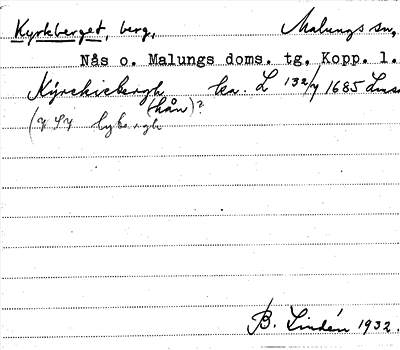 Kyrkberget, berg, Malungs sn,
Nås o. Malungs doms. tg, Kopp. l.
Kÿrckiebergh ka. L 132/7 1685 Lmså
(hån)?
B. Lindén 1932.